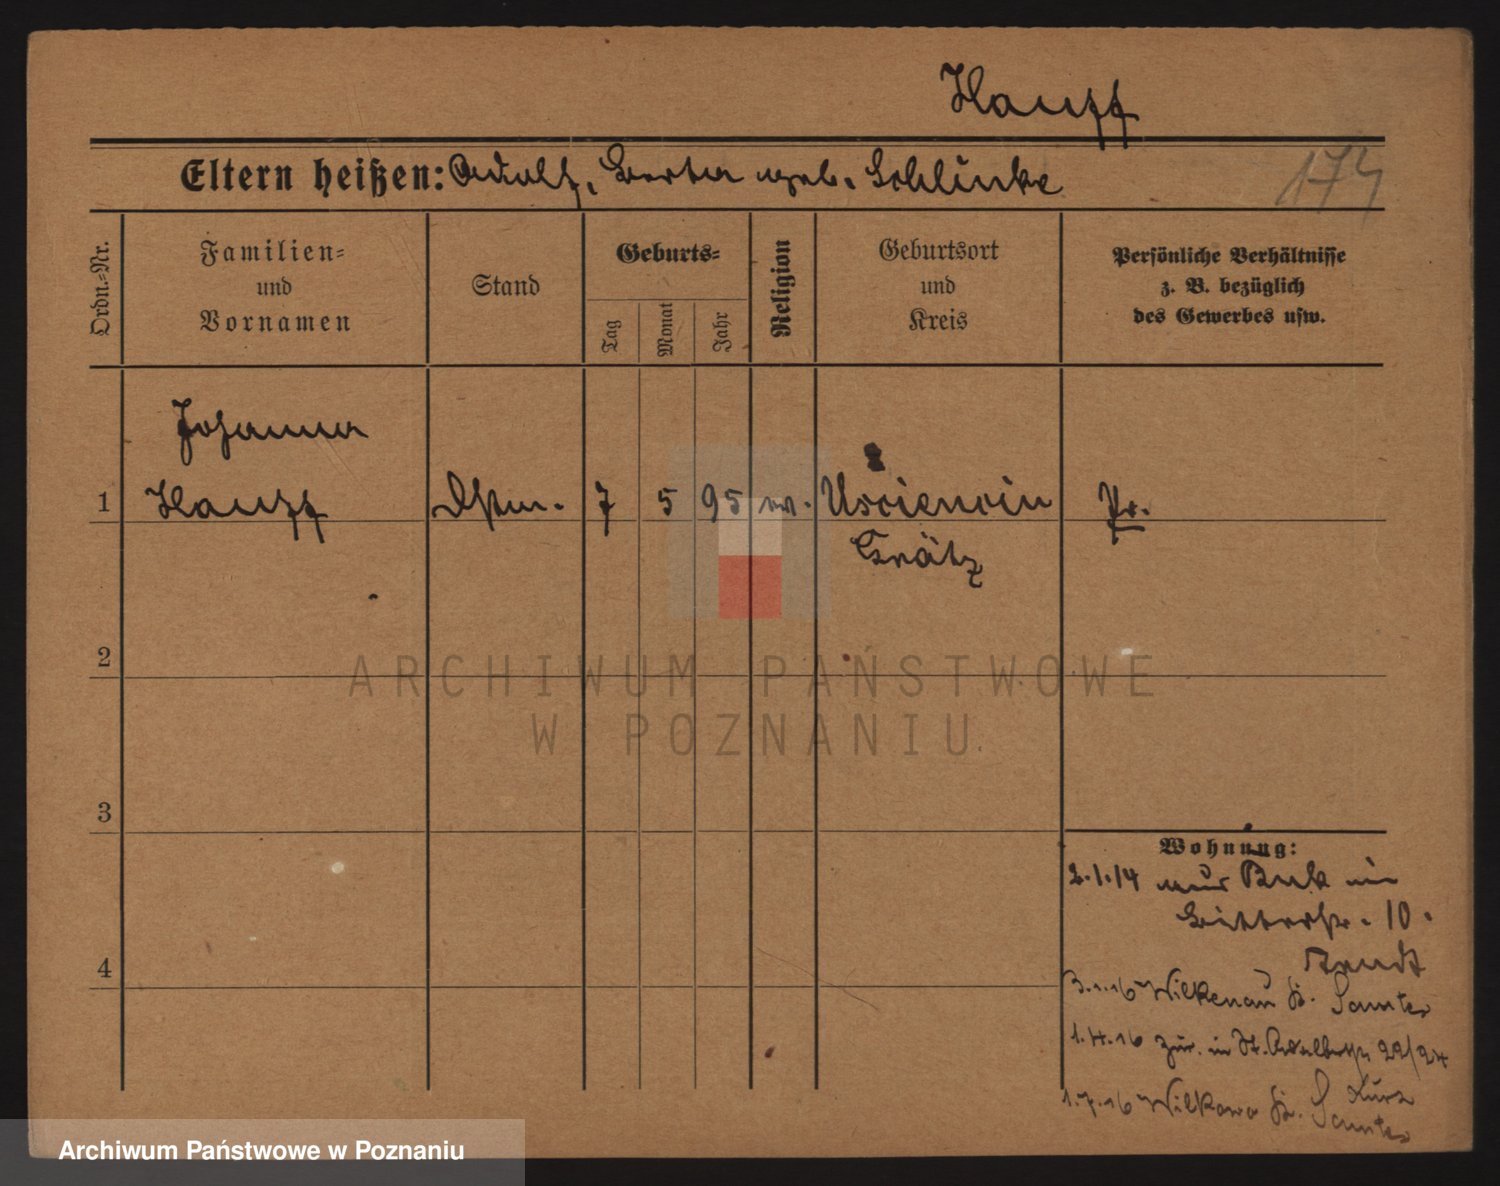 Hauff
174
Eltern heißen: Adolf, Berta geb. Schlinke
Ordn.-Nr.
Familien-
und
Vornamen
Stand
Geburts-
Tag
Monat
Jahr
Religion
Geburtsort
und
Kreis
Persönliche Verhältnisse
z. B. bezüglich
des Gewerbes usw.
Johanna
1 Hauff 7 5 95 Usciencin Pr.
Grätz
2
3
4
Wohnung:
2.1.14 aus Buk in
10.
3.1.16 Wilkenau Kr. Samter
1.4.16 zur. in St. Adalbertstr. 22/24
Kurz
1.7.16 Wilkowo Kr. Samter
ARCHIWUM PAŃSTWOWE
W POZNANIU
Archiwum Państwowe w Poznaniu